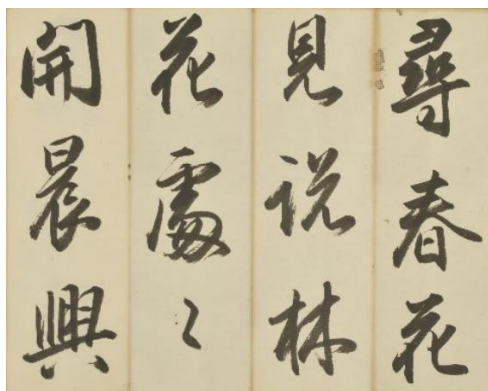 尋春花
見説林
花處〻
開晨興